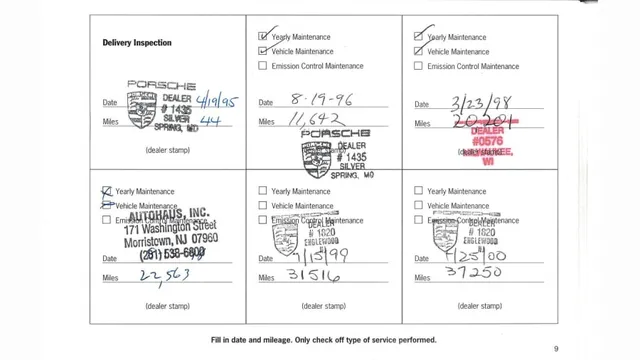 Delivery Inspection
PORSCHE
DEALER
# 1435
SILVER
SPRING, MD
Date 4/19/95
Miles 44
(dealer stamp)
Yearly Maintenance
Vehicle Maintenance
Emission Control Maintenance
Date 8-19-96
Miles 11,642
PORSCHE
DEALER
# 1435
SILVER
SPRING, MD
Yearly Maintenance
Vehicle Maintenance
Emission Control Maintenance
Date 3/23/98
Miles 20,201
DEALER
#0576
MILWAUKEE,
WI
Yearly Maintenance
Vehicle Maintenance
Emission Control Maintenance
AUTOHAUS, INC.
171 Washington Street
Morristown, NJ 07960
(201) 538-6800
Date
Miles 22,563
(dealer stamp)
Yearly Maintenance
Vehicle Maintenance
Emission Control Maintenance
DEALER
# 1820
ENGLEWOOD
Date 7/15/99
Miles 31516
(dealer stamp)
Yearly Maintenance
Vehicle Maintenance
Emission Control Maintenance
DEALER
# 1820
ENGLEWOOD
Date /25/00
Miles 37250
(dealer stamp)
Fill in date and mileage. Only check off type of service performed.
9